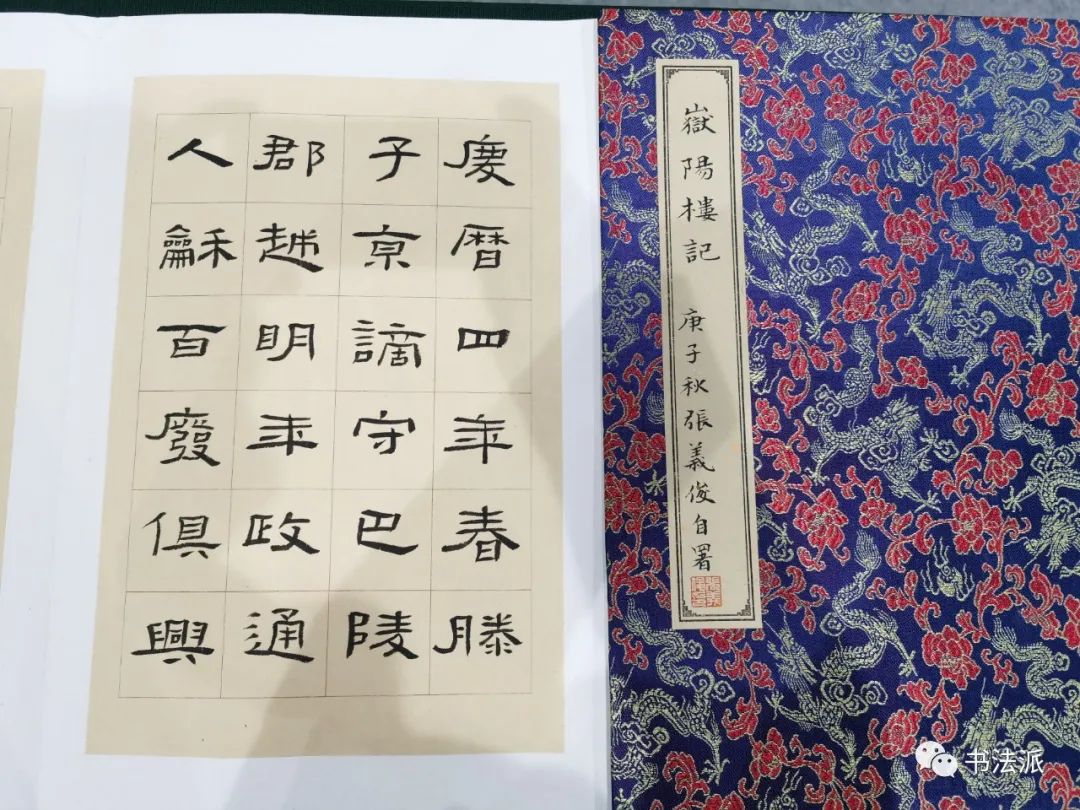 嶽陽樓記 庚子秋張義俊自署
慶曆四年春滕
子京謫守巴陵
郡越明年政通
人龢百廢俱興
书法派